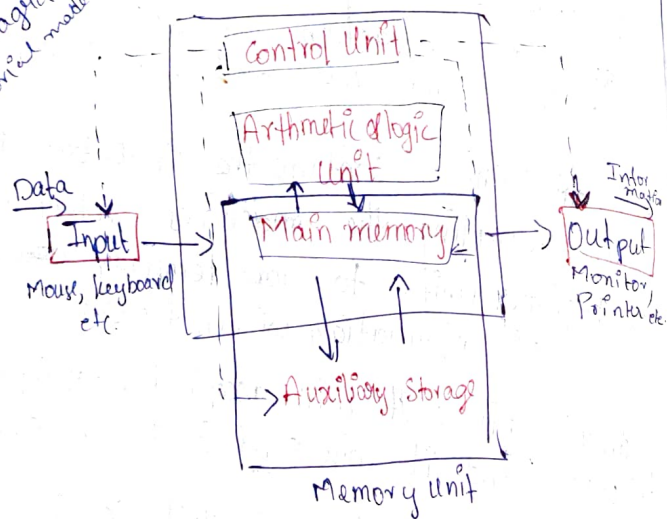 Control Unit
Arthmetic & logic
Unit
Data
Input
Mouse, keyboard
etc.
Main memory
Output
Monitor,
Printer etc.
Auxiliary Storage
Memory Unit